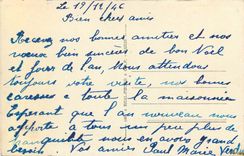 Le 19/12/46
Bien chers amis
Recevez nos bonnes amities et nos
voeux bien sincères de bon Noël
et jour de l'an, Nous attendons
toujours votre visite, nos bonnes
caresses a toute la maisonnée
Esperant que l'an nouveau nous
apporte a tous un peu plus de
tranquilité nous en avons grand
besoin. Vos amies Paul Marie